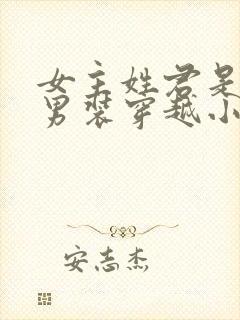 女主姓君是
男装穿越小
安志杰